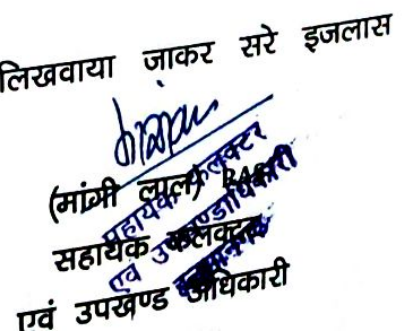 लिखवाया जाकर सरे इजलास
(मांगी लाल) RAS
सहायक कलक्टर
एवं उपखण्ड अधिकारी
सहायक कलक्टर
एवं उपखण्डाधिकारी